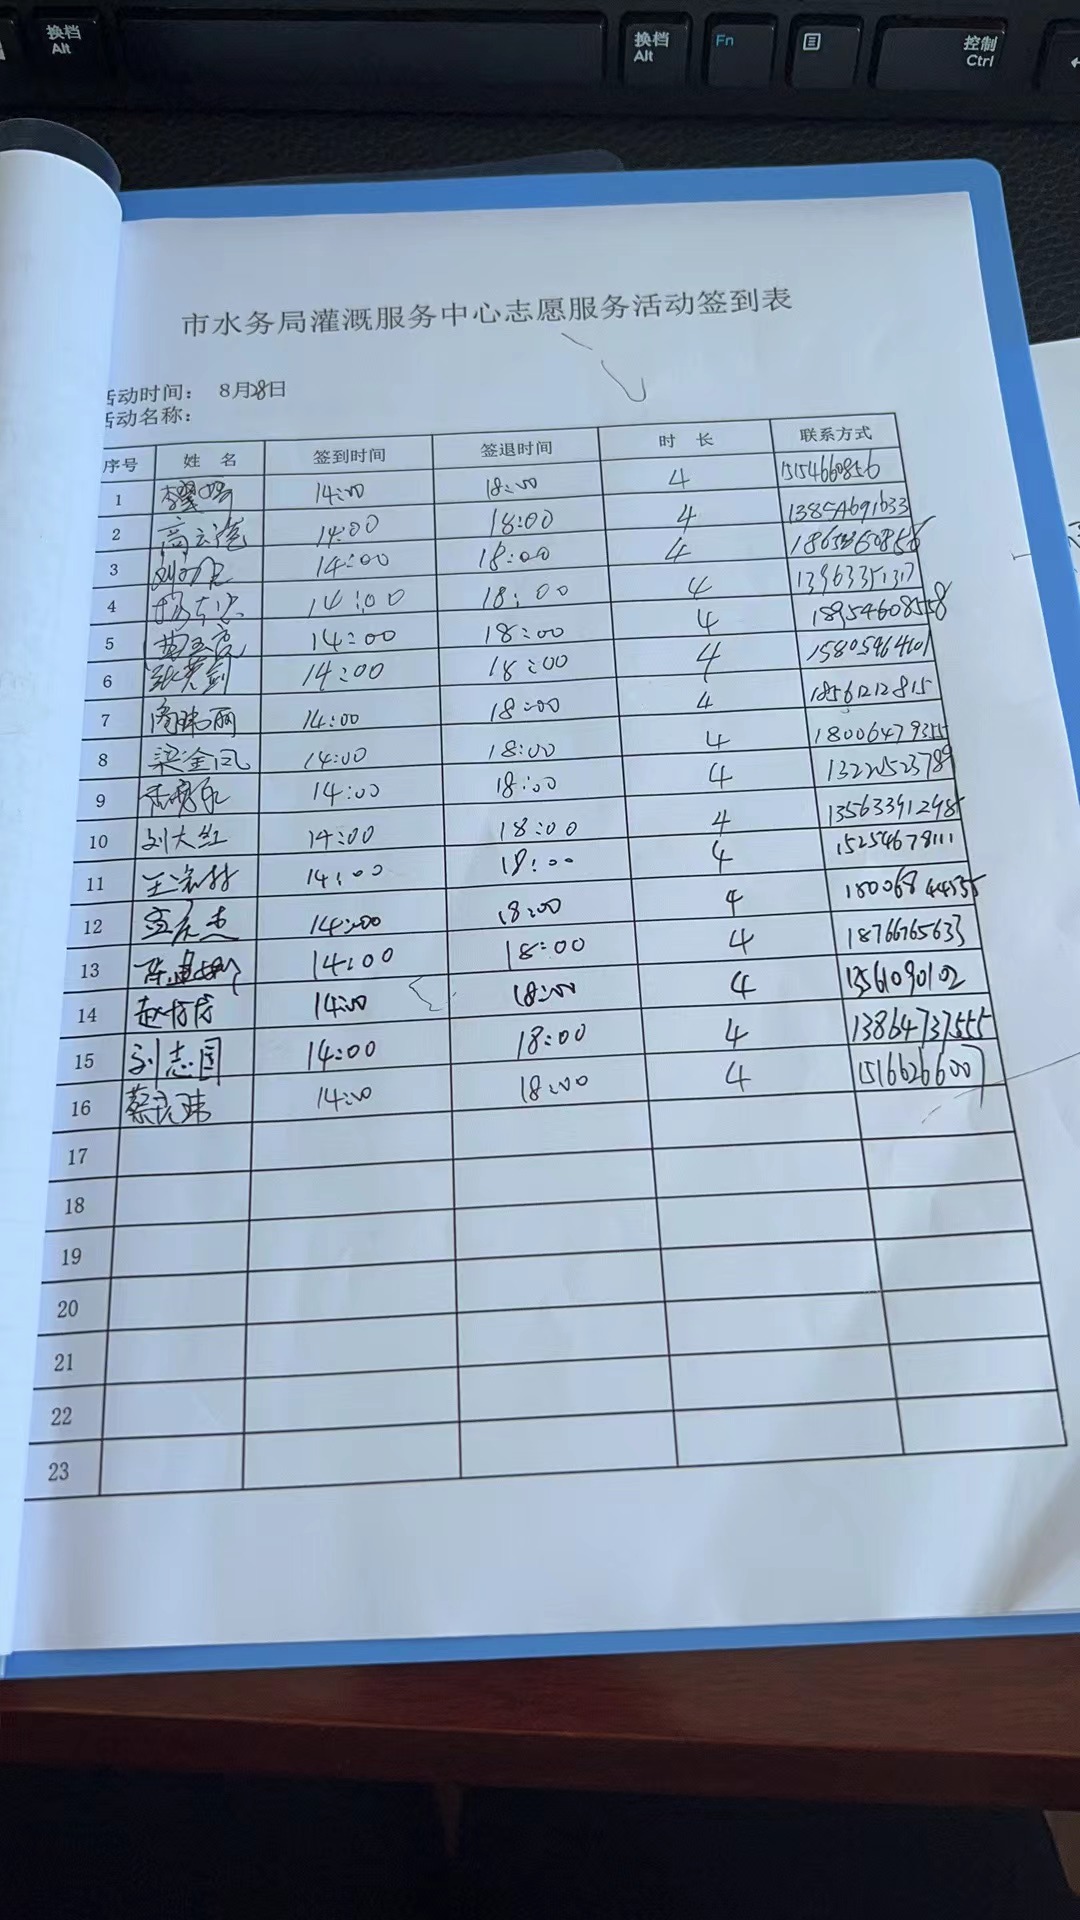 换档
Alt
换档
Alt
Fn
控制
Ctrl
市水务局灌溉服务中心志愿服务活动签到表
活动时间： 8月28日
活动名称：
序号 姓 名 签到时间 签退时间 时 长 联系方式
1 14:00 18:00 4 15154660856
2 高云 14:00 18:00 4 13854691633
3 14:00 18:00 4
4 14:00 18:00 4 13963351317
5 14:00 18:00 4 18954608558
6 张 剑 14:00 18:00 4
7 丽 14:00 18:00 4 18561212815
8 梁金凤 14:00 18:00 4 18006479355
9 14:00 18:00 4
10 刘大红 14:00 18:00 4
11 王 14:00 18:00 4 15254678111
12 杰 14:00 18:00 4
13 陈 14:00 18:00 4 18766765633
14 赵 14:00 18:00 4
15 刘志国 14:00 18:00 4 13864737555
16 蔡 玮 14:00 18:00 4 15166266007
17
18
19
20
21
22
23